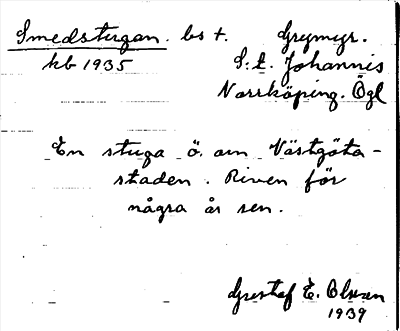 Smedstugan. bs t. Grymyr.
kb 1935 S:t. Johannis
Norrköping. Ögl
En stuga ö. om Västgöta-
staden. Riven för
några år sen.
Gustaf E. Olsson
1939